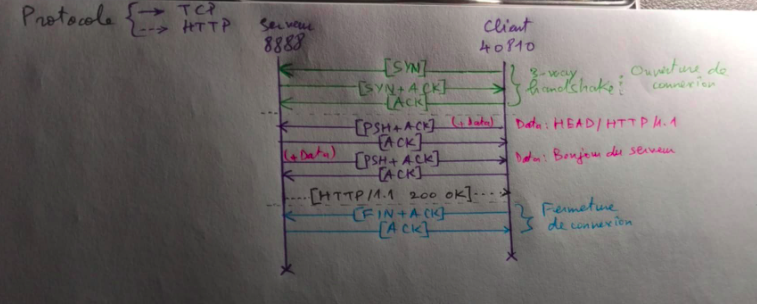 Protocole { → TCP
--→ HTTP
Serveur
8888
Client
40810
[SYN]
[SYN+ACK]
[ACK]
3-way handshake: Ouverture de connexion
[PSH+ACK] (+Data)
Data: HEAD/HTTP/1.1
[ACK]
(+Data) [PSH+ACK]
Data: Bonjour du serveur
[ACK]
[HTTP/1.1 200 OK]
[FIN+ACK]
[ACK]
Fermeture
de connexion